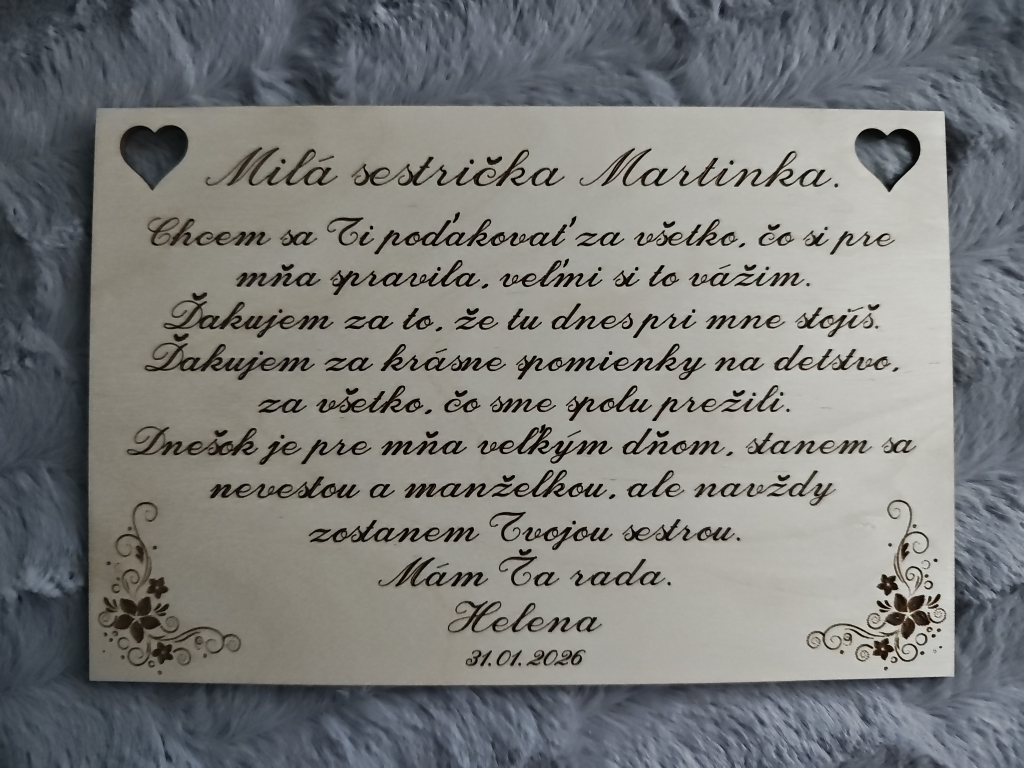 Milá sestrička Martinka.
Chcem sa Ti poďakovať za všetko, čo si pre
mňa spravila, veľmi si to vážim.
Ďakujem za to, že tu dnes pri mne stojíš.
Ďakujem za krásne spomienky na detstvo,
za všetko, čo sme spolu prežili.
Dnešok je pre mňa veľkým dňom, stanem sa
nevestou a manželkou, ale navždy
zostanem Tvojou sestrou.
Mám Ťa rada.
Helena
31.01.2026